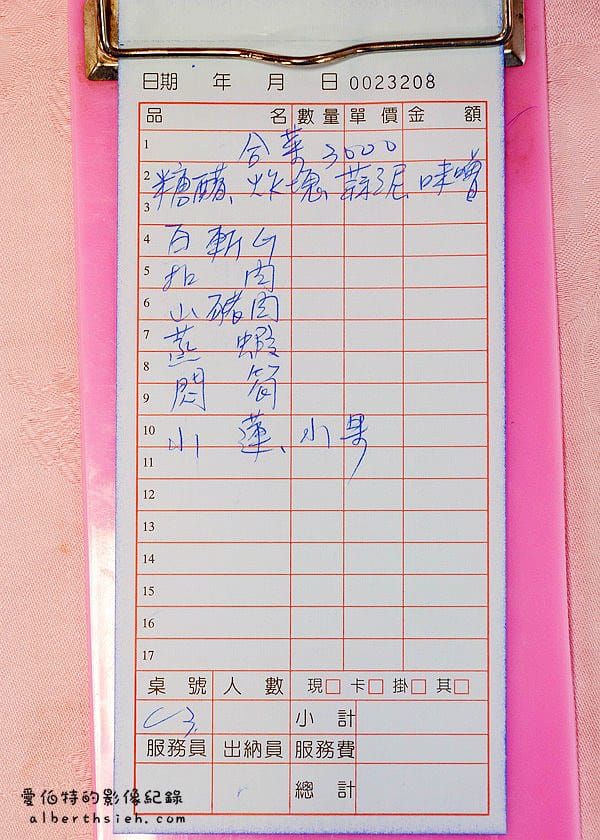 日期 年 月 日 0023208
品 名 數量 單價 金 額
1 合菜 3000
2 糖醋、炸塊、蒜泥、味噌
3
4 白斬
5 扣 肉
6 山豬肉
7 蒸 蝦
8
9 悶 筍
10 水 蓮、水果
11
12
13
14
15
16
17
桌號 人數 現□ 卡□ 掛□ 其□
小計
服務員 出納員 服務費
總計
愛伯特的影像紀錄
alberthsieh.com